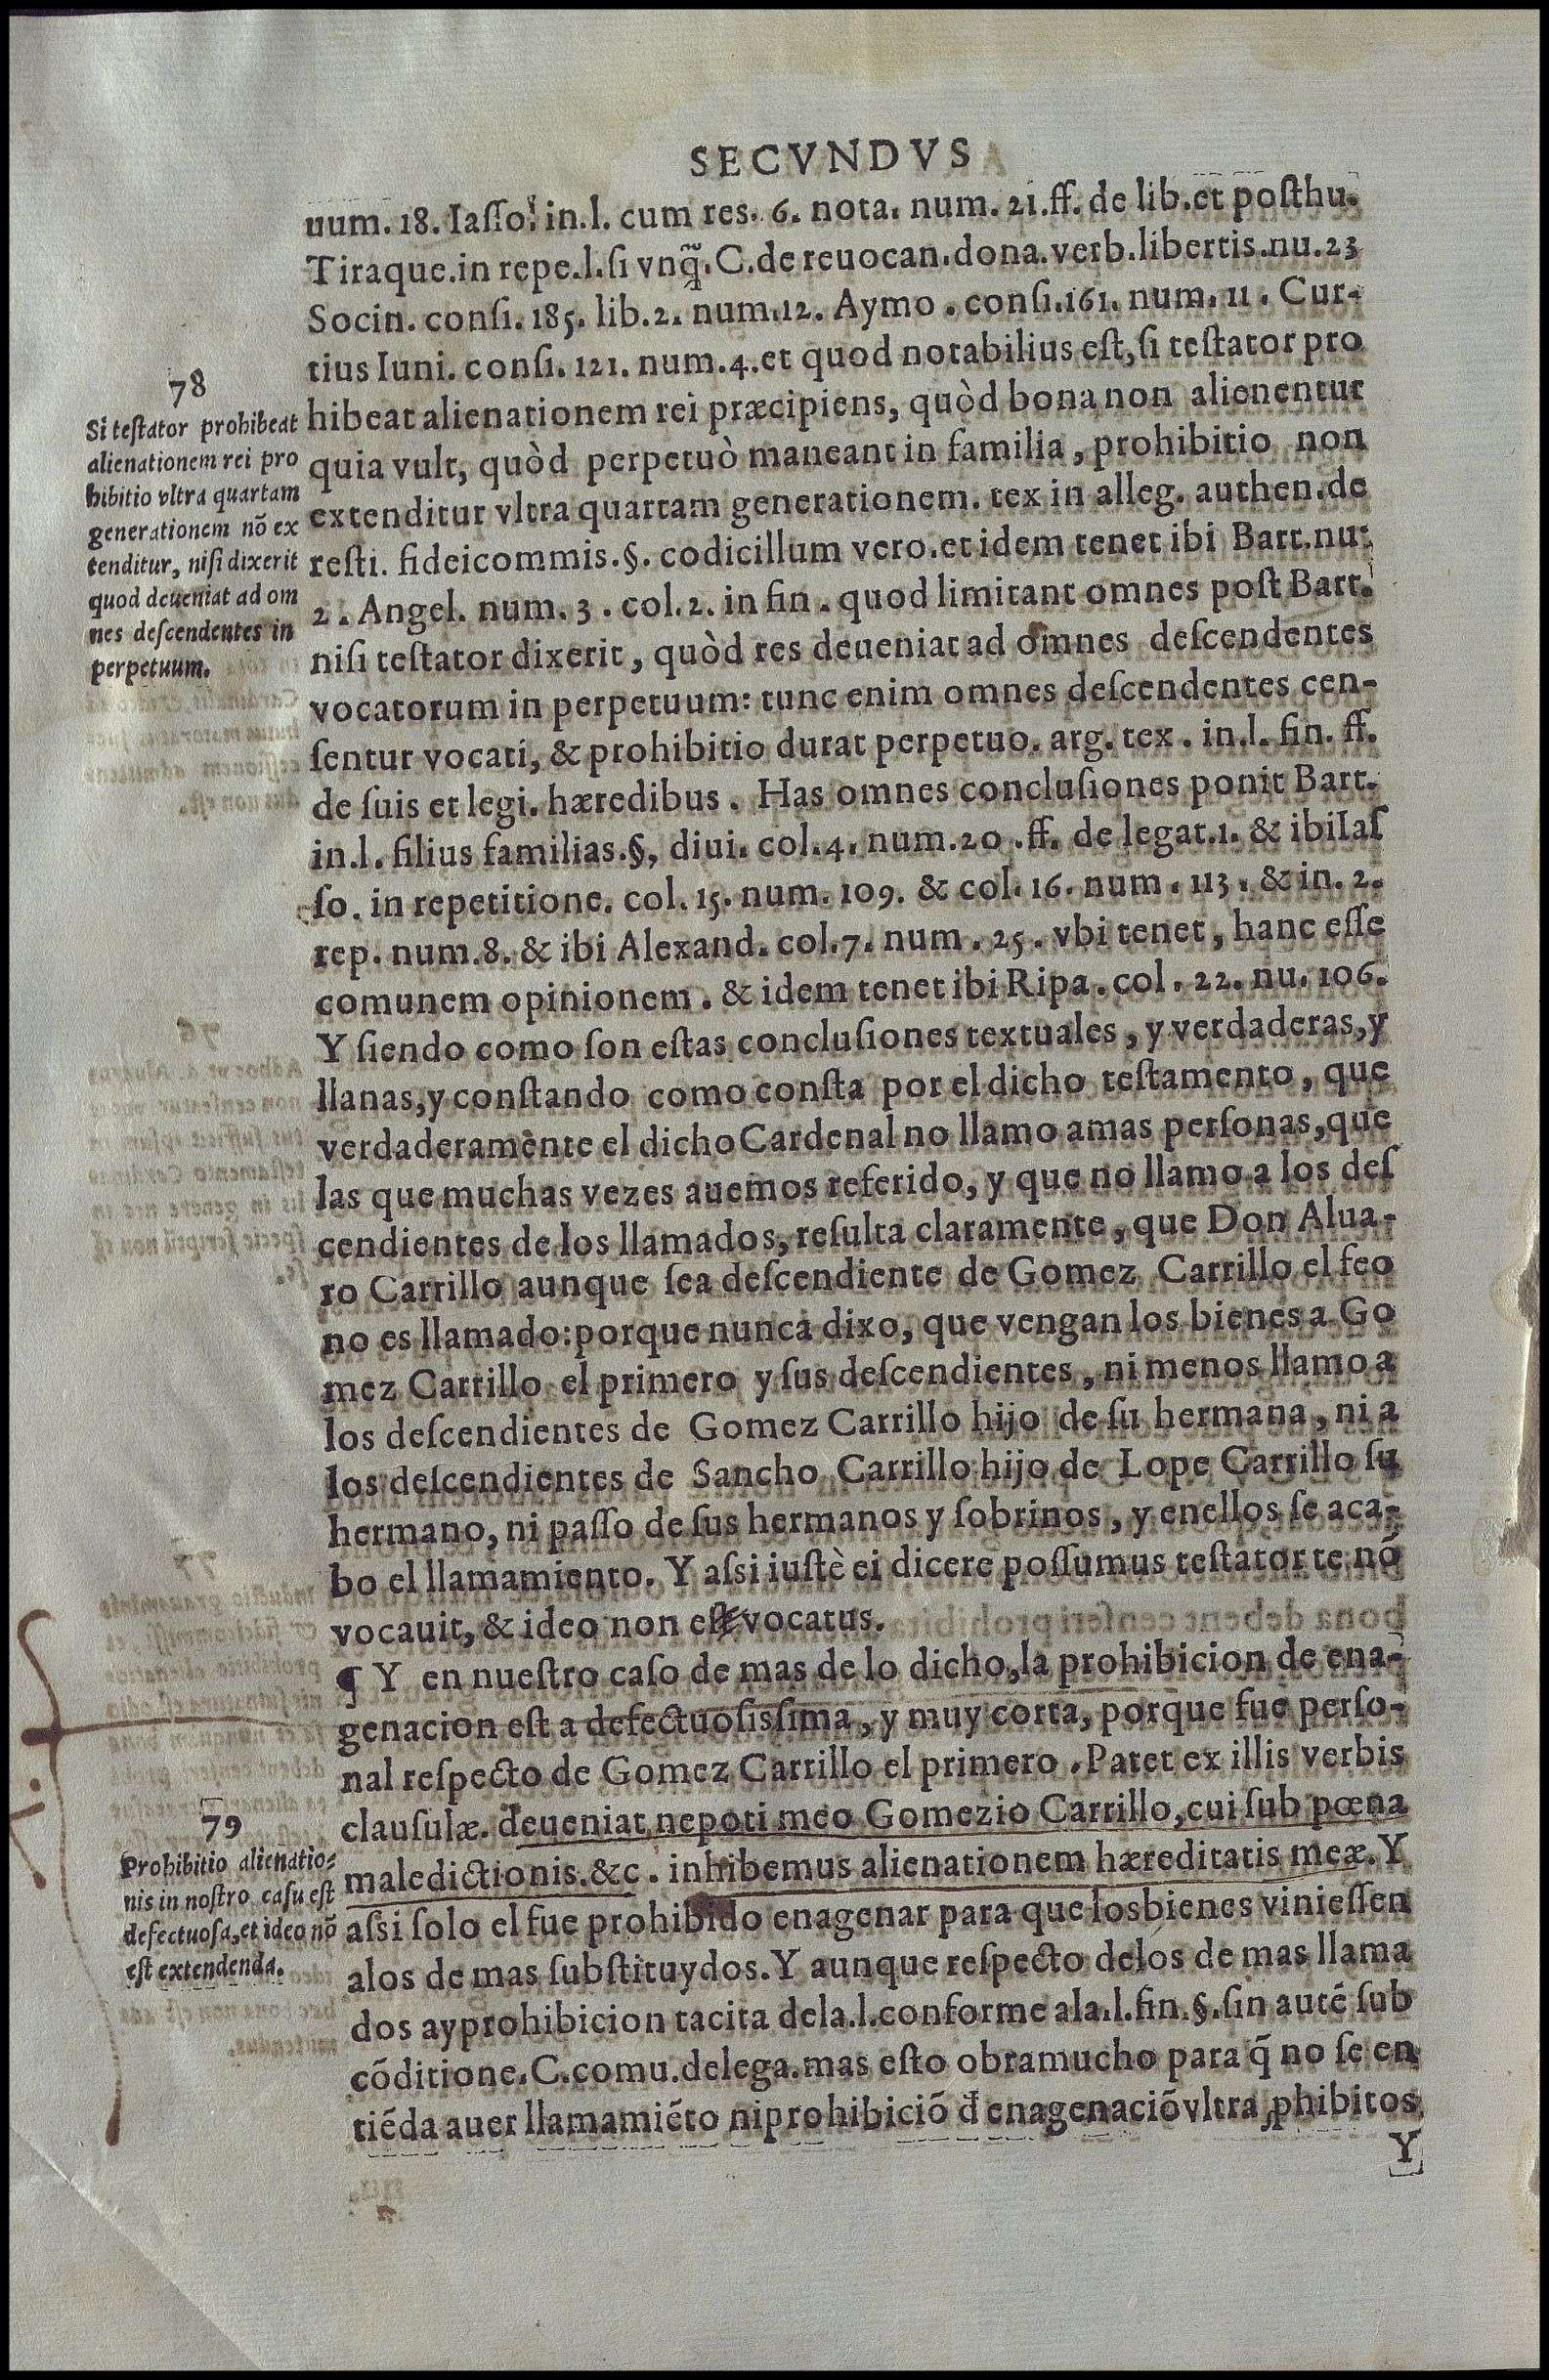 SECVNDVS
uum. 18. Iasso. in.l. cum res. 6. nota. num. 21.ff. de lib.et posthu.
Tiraque.in repe.l.si vnq̃.C.de reuocan.dona.verb.libertis.nu.23
Socin. consi. 185. lib.2. num.12. Aymo. consi.161. num. 11. Cur-
tius Iuni. consi. 121. num.4.et quod notabilius est, si testator pro
hibeat alienationem rei præcipiens, quòd bona non alienentur
quia vult, quòd perpetuò maneant in familia, prohibitio non
extenditur vltra quartam generationem. tex in alleg. authen.de
resti. fideicommis.§. codicillum vero.et idem tenet ibi Bart.nu.
2. Angel. num. 3. col.2. in fin. quod limitant omnes post Bart.
nisi testator dixerit, quòd res deueniat ad omnes descendentes
vocatorum in perpetuum: tunc enim omnes descendentes cen-
sentur vocati, & prohibitio durat perpetuo. arg. tex. in.l. fin. ff.
de suis et legi. hæredibus. Has omnes conclusiones ponit Bart.
in.l. filius familias.§, diui. col.4. num.20.ff. de legat.1. & ibi Ias
so. in repetitione. col. 15. num. 109. & col. 16. num. 113. & in. 2.
rep. num.8. & ibi Alexand. col.7. num. 25. vbi tenet, hanc esse
comunem opinionem. & idem tenet ibi Ripa. col. 22. nu. 106.
Y siendo como son estas conclusiones textuales, y verdaderas, y
llanas, y constando como consta por el dicho testamento, que
verdaderamente el dicho Cardenal no llamo a mas personas, que
las que muchas vezes auemos referido, y que no llamo a los des
cendientes de los llamados, resulta claramente, que Don Alua-
ro Carrillo aunque sea descendiente de Gomez Carrillo el feo
no es llamado: porque nunca dixo, que vengan los bienes a Go
mez Carrillo el primero y sus descendientes, ni menos llamo a
los descendientes de Gomez Carrillo hijo de su hermana, ni a
los descendientes de Sancho Carrillo hijo de Lope Carrillo su
hermano, ni passo de sus hermanos y sobrinos, y enellos se aca-
bo el llamamiento. Y assi iustè ei dicere possumus testator te nõ
vocauit, & ideo non est vocatus.
¶ Y en nuestro caso de mas de lo dicho, la prohibicion de ena-
genacion est a defectuosissima, y muy corta, porque fue perso-
nal respecto de Gomez Carrillo el primero. Patet ex illis verbis
clausulæ. deueniat nepoti meo Gomezio Carrillo, cui sub pœna
maledictionis.&c. inhibemus alienationem hæreditatis meæ. Y
assi solo el fue prohibido enagenar para que losbienes viniessen
alos de mas substituydos. Y aunque respecto delos de mas llama
dos ayprohibicion tacita dela.l.conforme ala.l.fin.§.sin autẽ sub
cõditione.C.comu.delega.mas esto obramucho para q̃ no se en
tiẽda auer llamamiẽto niprohibiciõ đ enagenaciõ vltra ꝓhibitos
Y
78
Si testator prohibeat
alienationem rei pro
hibitio vltra quartam
generationem nõ ex
tenditur, nisi dixerit
quod deueniat ad om
nes descendentes in
perpetuum.
79
Prohibitio alienatio-
nis in nostro casu est
defectuosa, et ideo nõ
est extendenda.